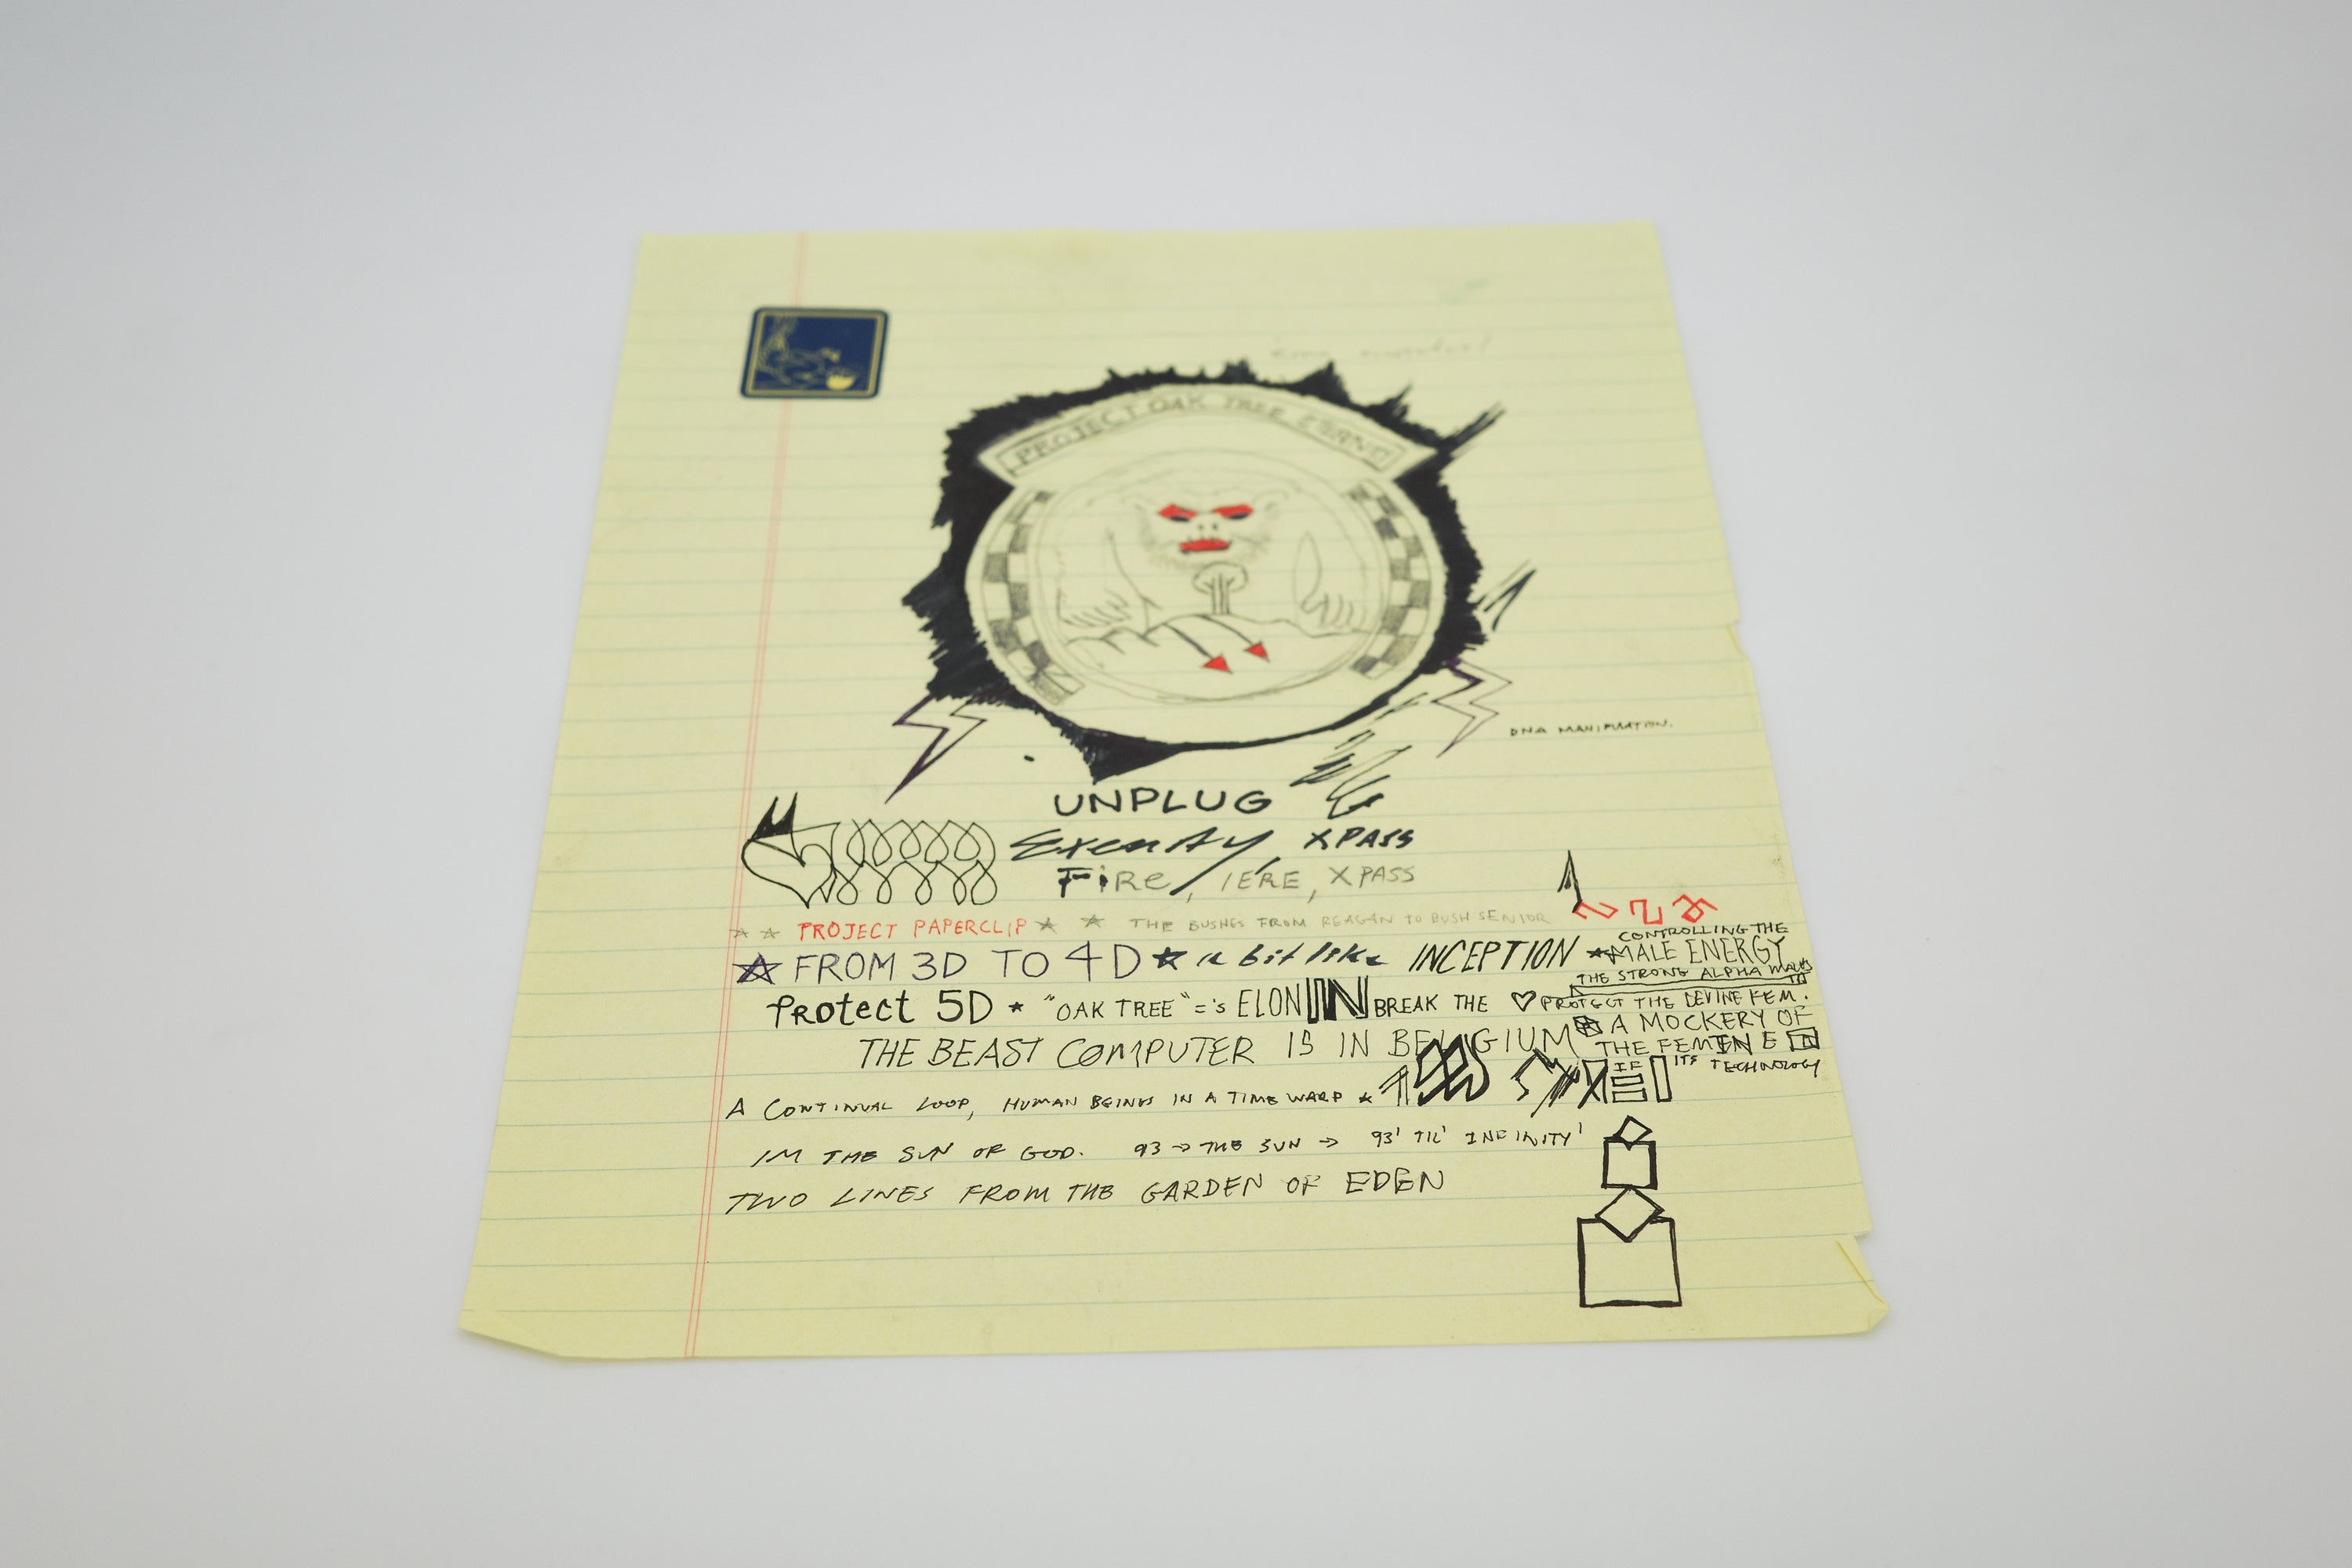 PROJECT OAK TREE
DNA MANIPULATION.
UNPLUG
XPASS
FiRe, 1ERE, XPASS
PROJECT PAPERCLIP THE BUSHES FROM REAGAN TO BUSH SENIOR
CONTROLLING THE
FROM 3D TO 4D a bit like INCEPTION MALE ENERGY
THE STRONG ALPHA MALES TO
Protect 5D "OAK TREE" = 's ELON IN BREAK THE PROTECT THE DEVINE FEM.
A MOCKERY OF
THE BEAST COMPUTER IS IN BELGIUM THE FEMINE
IF ITS TECHNOLOGY
A CONTINUAL LOOP, HUMAN BEINGS IN A TIME WARP
IM THE SUN OF GOD. 93 → THE SUN → 93' TIL' INFINITY'
TWO LINES FROM THE GARDEN OF EDEN